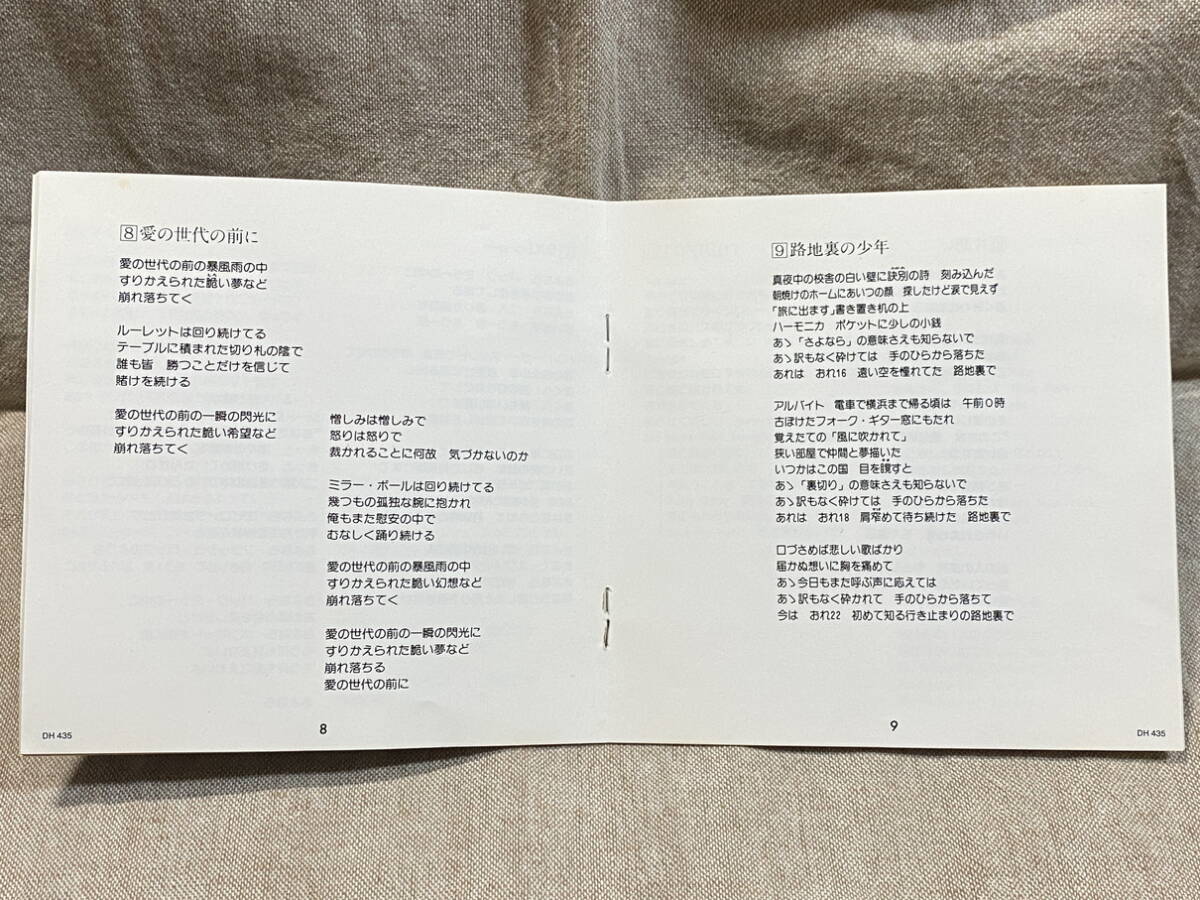 8 愛の世代の前に
愛の世代の前の暴風雨の中
すりかえられた詭い夢など
崩れ落ちてく
ルーレットは回り続けてる
テーブルに積まれた切り札の陰で
誰も皆　勝つことだけを信じて
賭けを続ける
愛の世代の前の一瞬の閃光に
すりかえられた詭い希望など
崩れ落ちてく
憎しみは憎しみで
怒りは怒りで
裁かれることに何故　気づかないのか
ミラー・ボールは回り続けてる
幾つもの孤独な腕に抱かれ
俺もまた慰安の中で
むなしく踊り続ける
愛の世代の前の暴風雨の中
すりかえられた詭い幻想など
崩れ落ちてく
愛の世代の前の一瞬の閃光に
すりかえられた詭い夢など
崩れ落ちる
愛の世代の前に
DH 435
8
9 路地裏の少年
真夜中の校舎の白い壁に訣別の詩　刻み込んだ
朝焼けのホームにあいつの顔　探したけど涙で見えず
「旅に出ます」書き置き机の上
ハーモニカ　ポケットに少しの小銭
あゝ「さよなら」の意味さえも知らないで
あゝ訳もなく砕けては　手のひらから落ちた
あれは　おれ16　遠い空を憧れてた　路地裏で
アルバイト　電車で横浜まで帰る頃は　午前0時
古ぼけたフォーク・ギター窓にもたれ
覚えたての「風に吹かれて」
狭い部屋で仲間と夢描いた
いつかはこの国　目を覚すと
あゝ「裏切り」の意味さえも知らないで
あゝ訳もなく砕けては　手のひらから落ちた
あれは　おれ18　肩窄めて待ち続けた　路地裏で
口づさめば悲しい歌ばかり
届かぬ想いに胸を痛めて
あゝ今日もまた呼ぶ声に応えては
あゝ訳もなく砕かれて　手のひらから落ちて
今は　おれ22　初めて知る行き止まりの路地裏で
9
DH 435